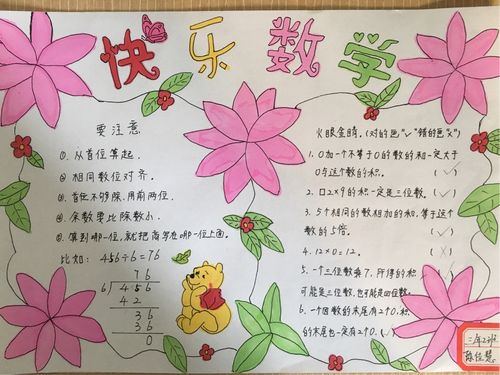 快乐数学
要注意
①.从首位算起.
②相同数位对齐.
③.首位不够除,用前两位.
④.余数要比除数小.
⑤.算到哪一位,就把商写在哪一位上面.
比如: 456÷6=76
76
6)456
42
36
36
0
火眼金睛.(对的画"√"错的画"×")
1.0加一个不等于0的数的和一定大于
0与这个数的积. (√)
2.口2×9的积一定是三位数. (√)
3.5个相同的数相加的和,等于这个
数的5倍. (√)
4.12×0=12. (×)
5.一个三位数乘7,所得的积
可能是三位数,也可能是四位数.
6.一个因数的末尾有2个0,积
的末尾也一定有2个0.(√)
三年2班
陈佳慧